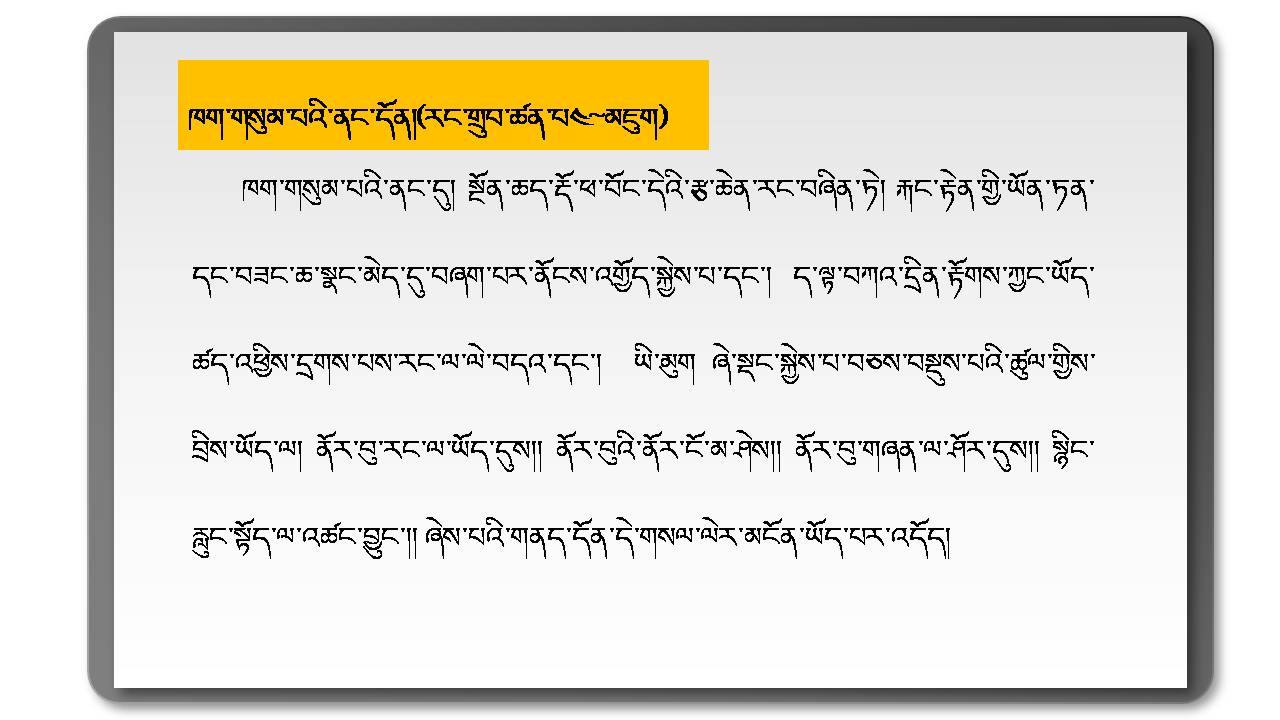 ཁག་གསུམ་པའི་ནང་དོན།(རང་གྲུབ་ཚན་པ༤~མཇུག)
ཁག་གསུམ་པའི་ནང་དུ། སྔོན་ཆད་རྡོ་ཕ་བོང་དེའི་རྩྭ་ཆེན་རང་བཞིན་ཏེ། རྐང་རྟེན་གྱི་ཡོན་ཏན་
དང་བཟང་ཆ་སྣང་མེད་དུ་བཞག་པར་ནོངས་འགྱོད་སྐྱེས་པ་དང་། ད་ལྟ་བཀའ་དྲིན་རྟོགས་ཀྱང་ཡོད་
ཚད་འཕྱིས་དྲགས་པས་རང་ལ་ལེ་བདའ་དང་། ཡི་མུག ཞེ་སྡང་སྐྱེས་པ་བཅས་བསྡུས་པའི་ཚུལ་གྱིས་
བྲིས་ཡོད་ལ། ནོར་བུ་རང་ལ་ཡོད་དུས།། ནོར་བུའི་ནོར་ངོ་མ་ཤེས།། ནོར་བུ་གཞན་ལ་ཤོར་དུས།། སྙིང་
རླུང་སྟོད་ལ་འཚང་བྱུང་།། ཞེས་པའི་གནད་དོན་དེ་གསལ་ལེར་མངོན་ཡོད་པར་འདོད།